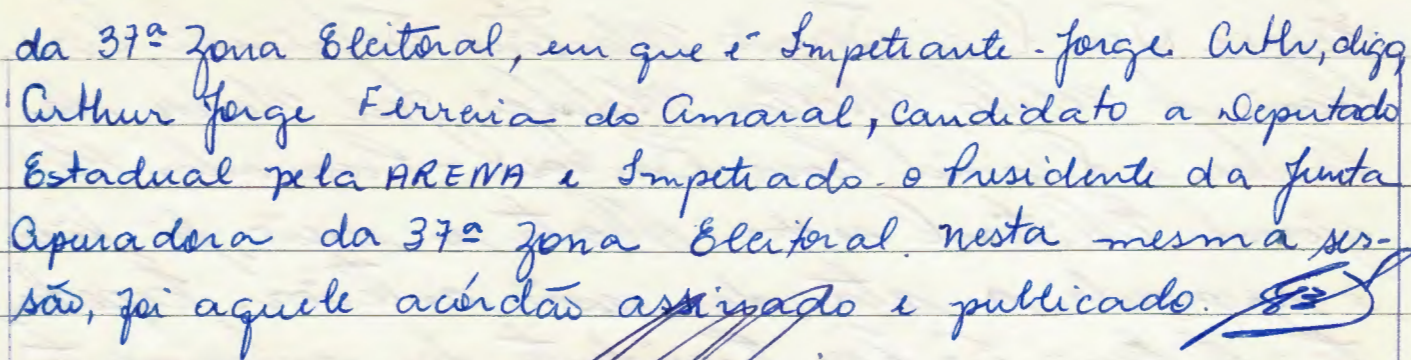 da 37ª Zona Eleitoral, em que é Impetrante - Jorge Arthr, digo,
Arthur Jorge Ferreira do Amaral, candidato a Deputado
Estadual pela ARENA e Impetrado - o Presidente da Junta
Apuradora da 37ª Zona Eleitoral. nesta mesma ses-
são, foi aquele acórdão assinado e publicado.